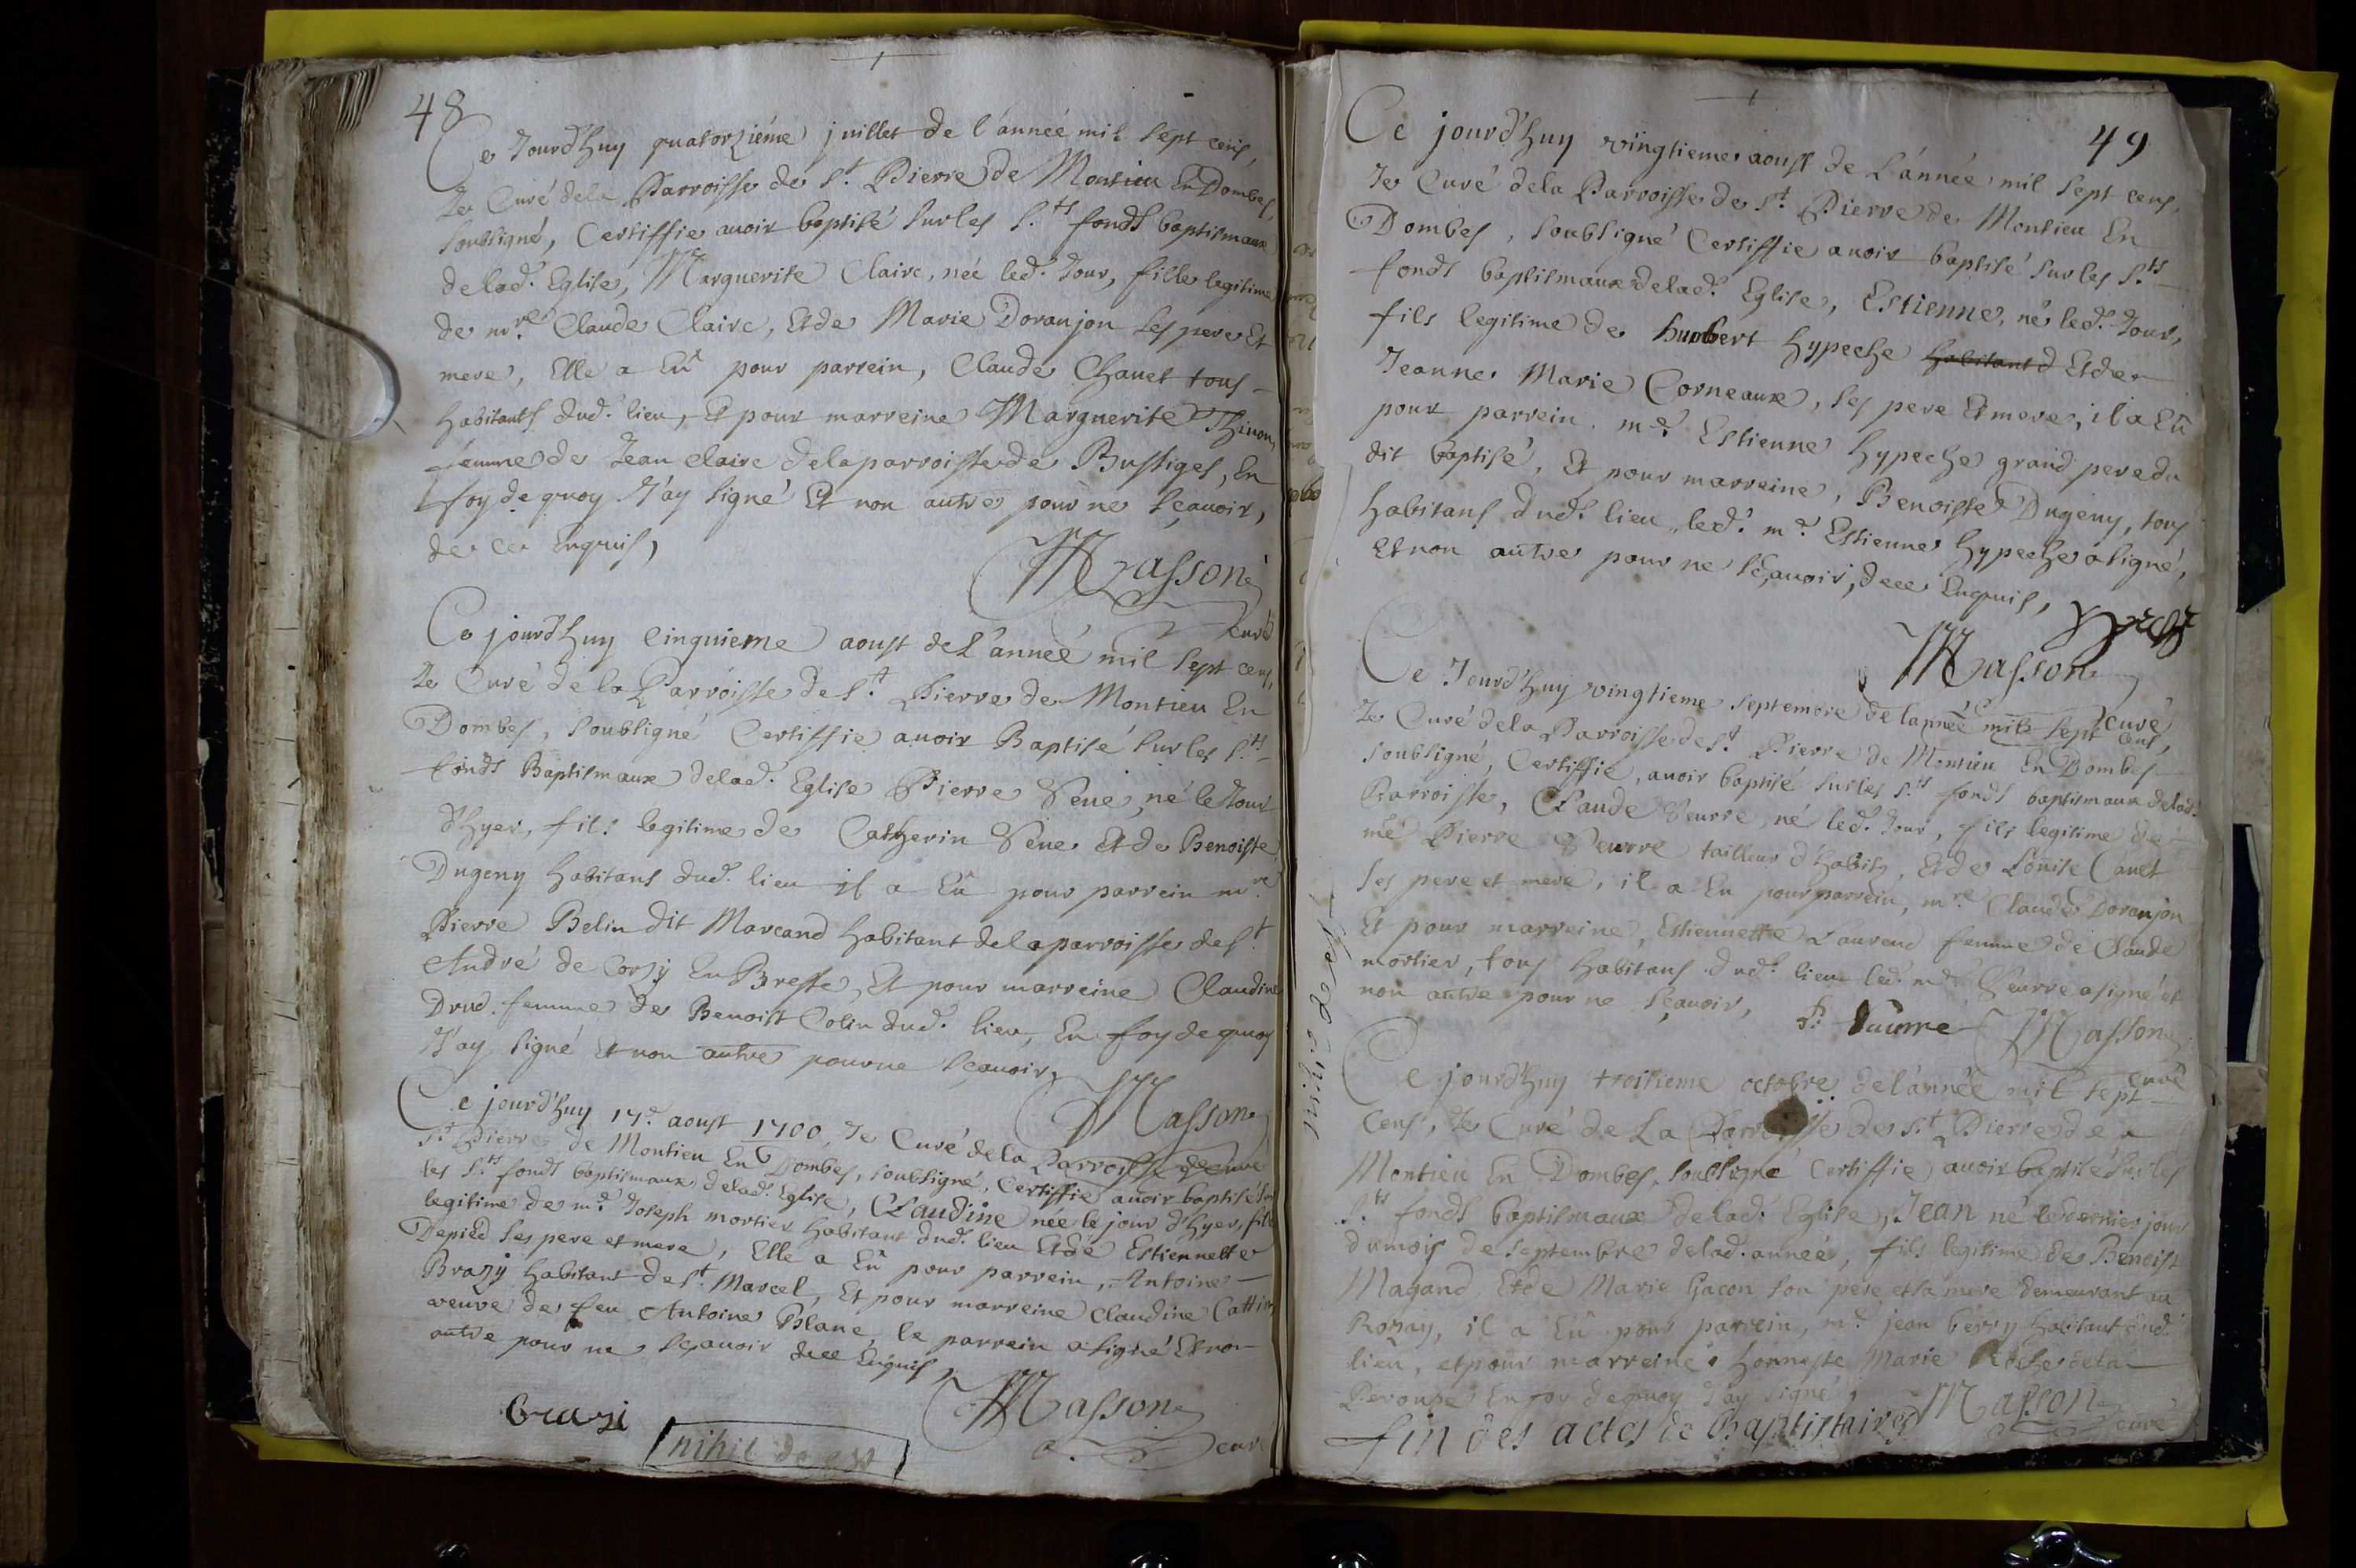 48
Ce Jourd'huy quatorzième juillet de l'année mil sept cens,
Je Curé dela Parroisse de St. Pierre de Montieu En Dombes,
soubsigné, Certiffie auoir baptisé sur les Sts fonds baptismaux
de lad. Eglise, Marguerite Claire, née led. Jour, fille legitime
de mre Claude Claire, Et de Marie Doranjon ses pere Et
mere, Elle a Eû pour parrein, Claude Chanel tous
habitants dud. lieu, Et pour marreine Marguerite Thinon,
femme de Jean claire de la parroisse de Bussiges, En
foy de quoy J'ay signé Et non autre pour ne sçauoir,
de ce Enquis,
Masson
curé
Ce jourd'huy Cinquieme aoust de L'année mil sept cens,
Je Curé de la Parroisse de St. Pierre de Montieu En
Dombes, soubsigné Certiffie auoir Baptisé sur les Sts
fonds Baptismaux de lad. Eglise Pierre Vene, né le Jour
d'hyer, fils legitime de Catherin Vene Et de Benoiste
Dugeny habitans dud. lieu il a Eû pour parrein mre
Pierre Belin dit Marcand habitant de la parroisse de St.
André de Corzy En Bresse, Et pour marreine Claudine
Drud femme de Benoist Colin dud. lieu, En foy de quoy
J'ay signé Et non autre pour ne sçauoir,
Masson
curé
Ce jourd'huy 17e. aoust 1700, Je Curé de la Parroisse de
St. Pierre de Montieu En Dombes, soubsigné, Certiffie auoir baptisé sur
les Sts. fonds baptismaux de lad. Eglise, Claudine née le jour d'hyer, fille
legitime de md. Joseph mortier habitant dud. lieu Et de Estiennette
Depied ses pere et mere, Elle a Eû pour parrein, Antoine
Brazy habitant de St. Marcel, Et pour marreine Claudine Cattin,
veuve de feu Antoine Blanc, le parrein a signé Et non
autre pour ne sçauoir de ce Enquis,
Masson
curé
brazi
nihil de est
49
Ce jourd'huy vingtieme aoust de L'année mil sept cens,
Je Curé de la Parroisse de St. Pierre de Montieu En
Dombes, soubsigné Certiffie auoir baptisé sur les Sts
fonds baptismaux de lad. Eglise, Estienne, né led. Jour,
fils legitime de humbert hypeche habitant d Et de
Jeanne Marie Corneaux, ses pere Et mere, il a Eû
pour parrein. md. Estienne hypeche grand pere du
dit baptisé, Et pour marreine, Benoiste Dugeny, tous
habitans dud. lieu, led. md. Estienne hypeche a signé,
Et non autre pour ne sçauoir, de ce Enquis,
Masson
curé
Ce Jourd'huy vingtieme septembre de lannée mil sept cens,
Je Curé de la Parroisse de St. Pierre de Montieu En Dombes
soubsigné, Certiffie, auoir baptisé sur les Sts. fonds baptismaux de lad.
Parroisse, Claude Seurre, né led. Jour, fils legitime de
mé Pierre Seurre tailleur d'habits, Et de Louise Canet
ses pere et mere, il a Eu pour parrein, mre Claude Doranjon
Et pour marreine, Estiennette Laurend femme de Claude
mortier, tous habitans dud. lieu led. md. Seurre a signé et
non autre pour ne sçauoir,
P. Saurre Masson
curé
Ce jourd'huy troisieme octobre de l'année mil sept
cens, Je Curé de La Parroisse de St. Pierre de
Montieu En Dombes, soubsigné Certiffie auoir baptisé sur les
Sts fonds baptismaux de lad. Eglise, Jean né le dernier jour
du mois de septembre de lad. année, fils legitime de Benoist
Magand Et de Marie Gacon son pere et sa mere demeurant au
Rozay, il a Eû pour parrein, md. jean berry habitant dud.
lieu, et pour marreine honneste Marie Roche de la
Perouse En foy de quoy J'ay signé,
Masson
curé
fin des actes de Baptistaires
nihil de est